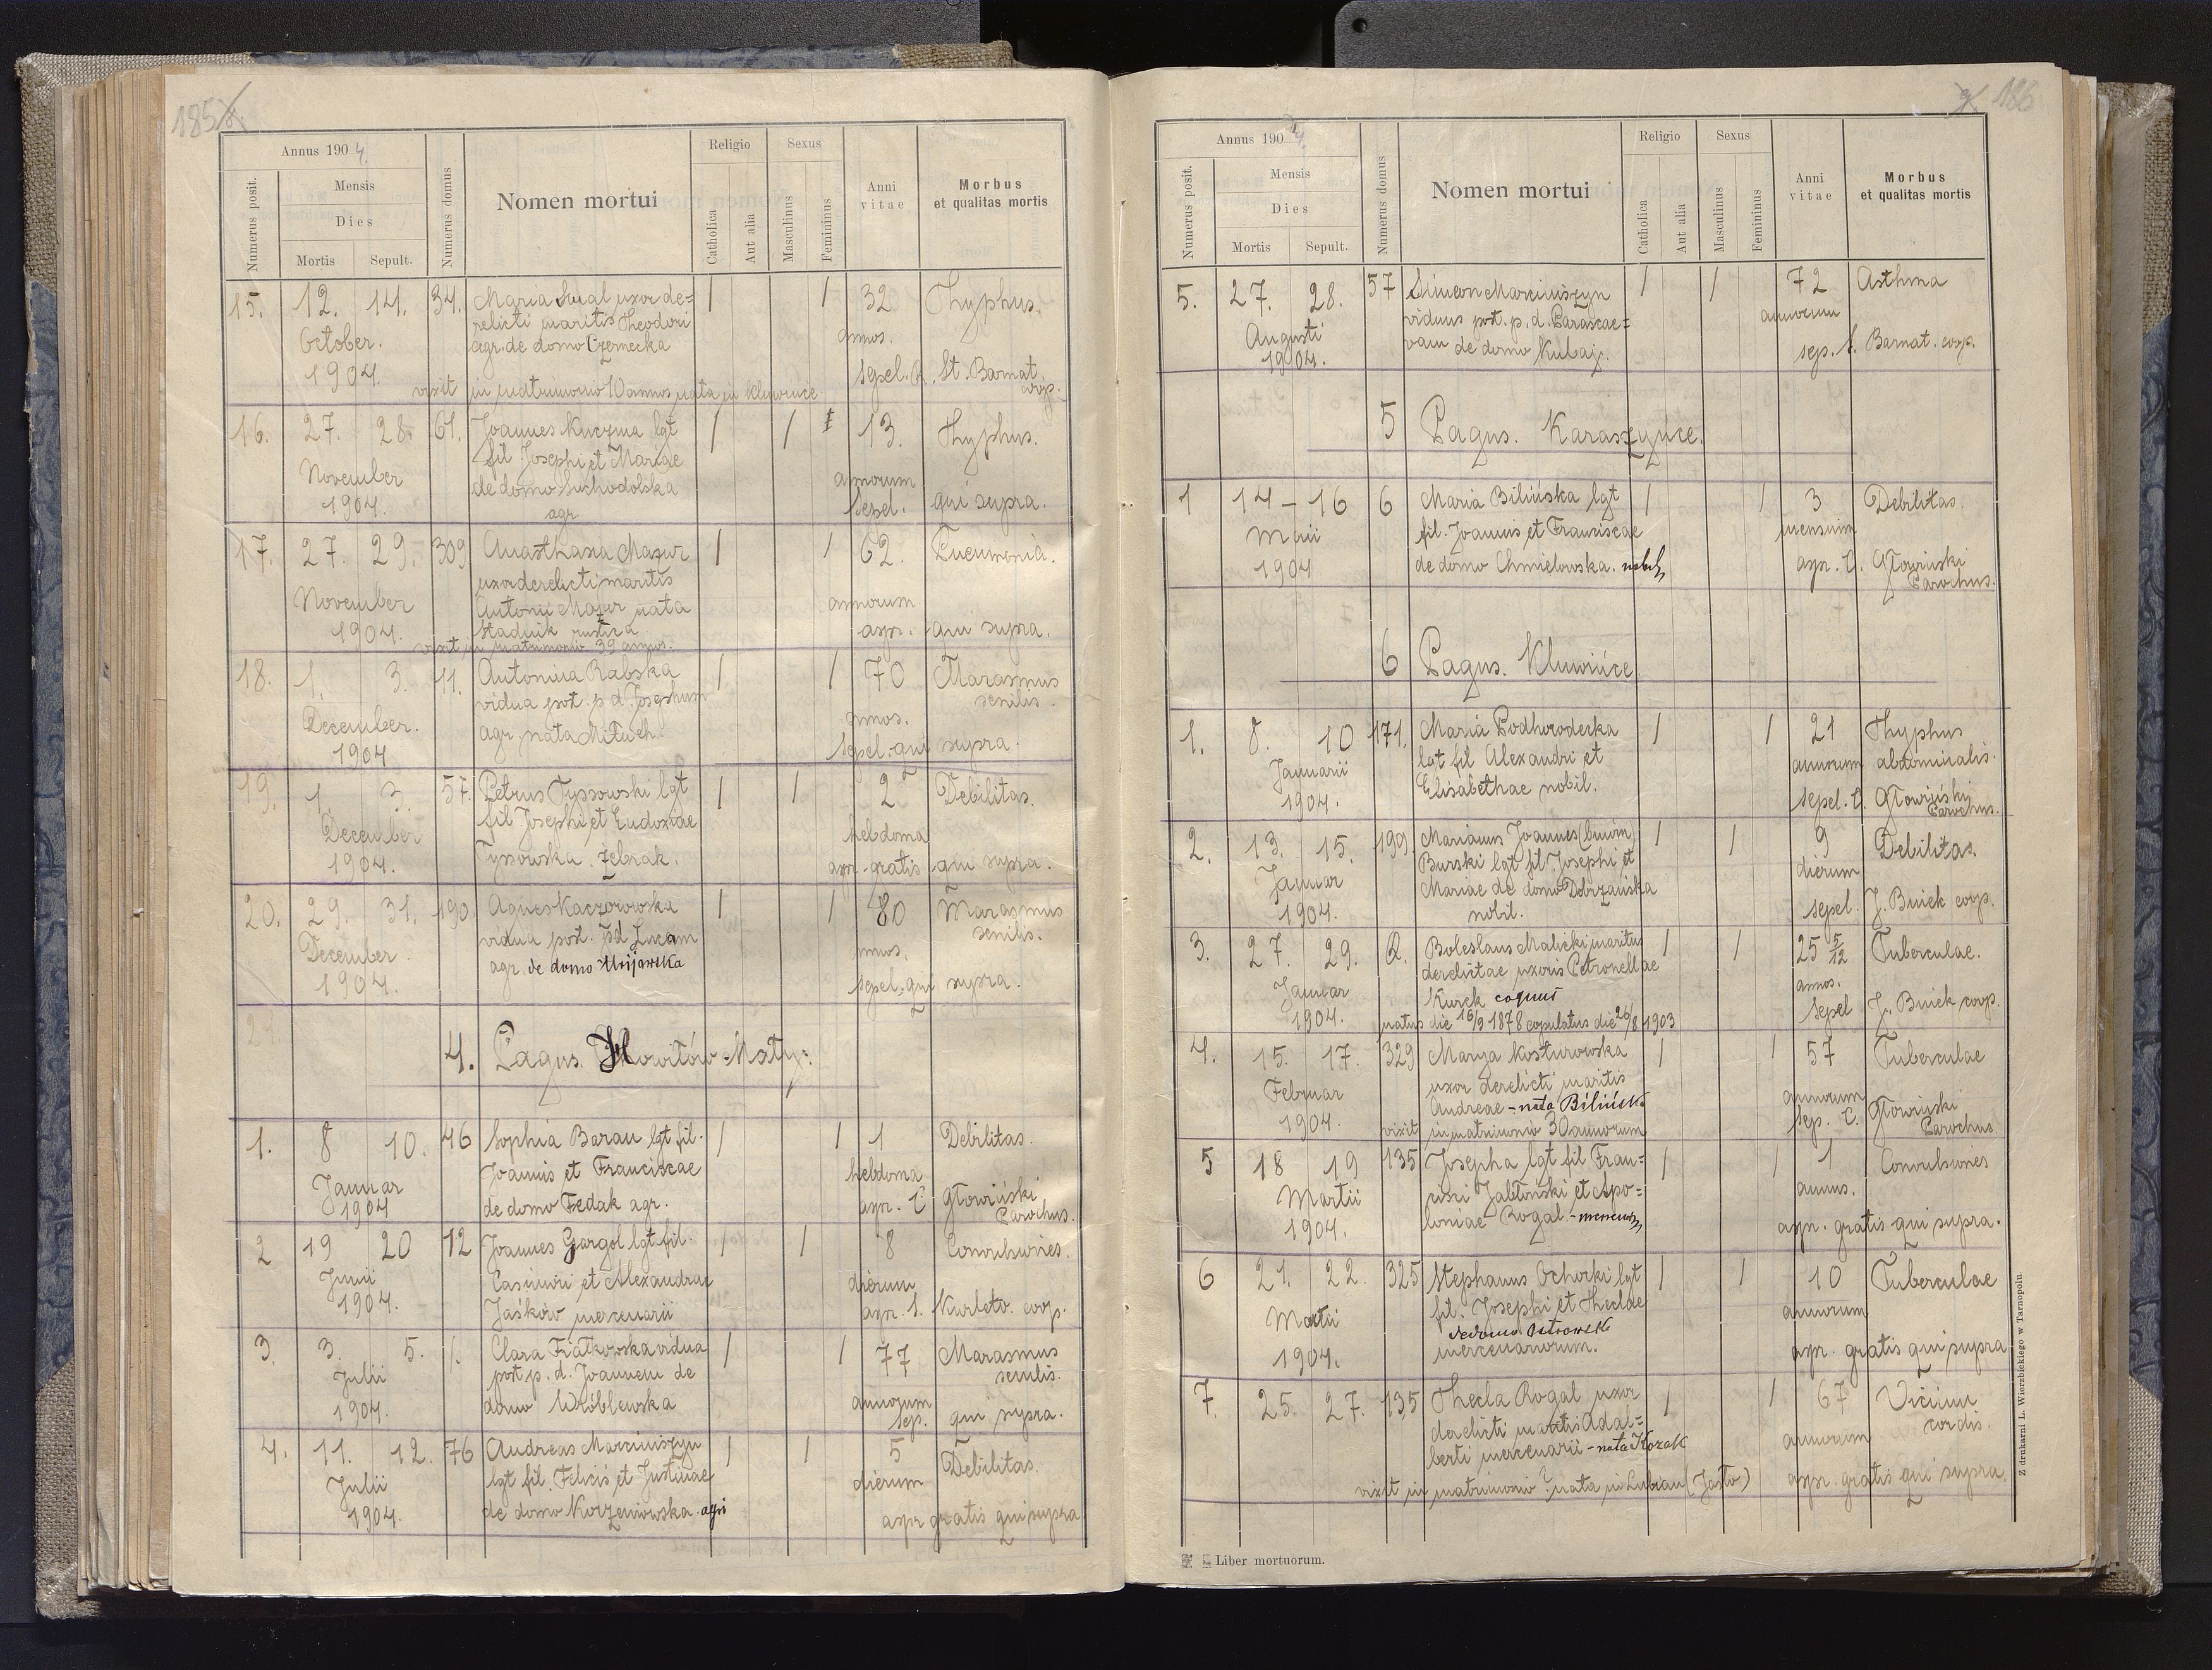 185
Annus 1904.
Numerus posit.
Mensis
Dies
Mortis
Sepult.
Numerus domus
Nomen mortui
Religio
Catholica
Aut alia
Sexus
Masculinus
Femininus
Anni vitae
Morbus et qualitas mortis
15. 12. 14. 34. Maria uxor de= 1 1 32 Thyphus.
relicti maritis Theodori
October. agr. de domo Czernecka annos.
1904. sepel. St. Barnat coop.
vixit in matrimonio 10 annos nata in Kluwince
16. 27. 28. 61. Joannes Kuczma lgt 1 1 13. Thyphus.
fil Josephi et Mariae
November de domo Suchodolska annorum
1904. agr sepel. qui supra.
17. 27. 29. 309 Anasthasia Mazur 1 1 62. Pneumonia.
uxor derelicti maritis
November Antonii Mazur nata annorum
1904. Stadnik rustica aspr. qui supra.
vixit in matrimonio 39 annos.
18. 1. 3. 11. Antonina Rabska 1 1 70 Marasmus
vidua post. p. d. Josephum senilis.
December. agr. nata Mituch annos.
1904 sepel. qui supra.
19. 1. 3. 57. Petrus Tyssowski lgt 1 1 2 Debilitas.
fil Josephi et Eudoxiae
December Tyssowska. żebrak. hebdoma
1904. aspr. gratis qui supra.
20. 29. 31. 190. Agnes Kaczorowska 1 1 80 Marasmus
vidua post. pd Lucam senilis.
December. agr. de domo annos.
1904. sepel. qui supra.
21.
4. Pagus. Howiłów-Mały:
1. 8 10. 46 Sophia Baran lgt fil. 1 1 1 Debilitas.
Joannis et Franciscae hebdoma
Januar de domo Fedak agr. aspr. C. Głowiński
1904 Parochus.
2 19 20 12 Joannes Gargol lgt fil. 1 1 8 Convulsiones.
Junii Casimiri et Alexandrae dierum
1904. Jaśków mercenarii aspr. S. coop.
3. 3. 5. 1. Clara Fiałkowska vidua 1 1 77 Marasmus
Julii post p. d. Joannem de senilis.
1904. domo Wróblewska annorum
sep. qui supra.
4. 11. 12. 76 Andreas Marciniszyn 1 1 5 Debilitas.
Julii lgt fil. Felicis et Justinae dierum
1904. de domo Korzeniowska. agri
aspr gratis qui supra
186
Annus 1904.
Numerus posit.
Mensis
Dies
Mortis
Sepult.
Numerus domus
Nomen mortui
Religio
Catholica
Aut alia
Sexus
Masculinus
Femininus
Anni vitae
Morbus et qualitas mortis
5. 27. 28. 57 Simeon Marciniszyn 1 1 72 Asthma
Augusti viduus post. p. d. Parascae= annorum
1904. vam de domo Kubaj. sep. S. Barnat. coop.
5 Pagus. Karaszyńce.
1 14 – 16 6 Maria Bilińska lgt 1 1 3 Debilitas.
Maii fil. Joannis et Franciscae mensium
1904 de domo Chmielowska. nobil aspr. C. Głowiński
Parochus.
6 Pagus. Kluwińce.
1. 8. 10 171. Maria Podhorodecka 1 1 21 Thyphus
Januarii lgt fil Alexandri et annorum abdominalis.
1904. Elisabethae nobil. sepel. C. Głowiński
Parochus.
2. 13. 15. 199 Marianus Joannes (binom) 1 1 9 Debilitas.
Januar Burski lgt fil. Josephi et dierum
1904. Mariae de domo Dobrzańska
nobil. sepel. J. Buiek coop.
3. 27. 29. Boleslaus Malicki maritus 1 1 25 5/12 Tuberculae.
Januar derelictae uxoris Petronellae annos.
1904. Kurek coquus sepel J. Buiek coop.
natus die 16/9 1878 copulatus die 26/8 1903
4. 15. 17. 329 Marya Kosturowska 1 1 57 Tuberculae
Februar uxor derelicti maritis annorum
1904. Andreae – nata Bilińska sep. C. Głowiński
vixit in matrimonio 30 annorum Parochus.
5 18 19 135 Josepha lgt fil Fran= 1 1 1 Convulsiones
Martii cisci Jabłoński et Apo= annus.
1904. loniae Rogal – aspr. gratis qui supra.
6 21. 22. 325 Stephanus Ochocki lgt 1 1 10 Tuberculae
Martii fil. Josephi et Theclae annorum
de domo Ostrowsk
1904. mercenariorum. aspr. gratis qui supra
7. 25. 27. 135 Thecla Rogal uxor 1 1 67 Vicium
derelicti maritis Adal= annorum cordis.
berti mercenarii – nata Kozak
vixit in matrimonio? nata in Lubzan (Jasło) aspr. gratis qui supra.
Liber mortuorum.
Z drukarni L. Wierzbickiego w Tarnopolu.